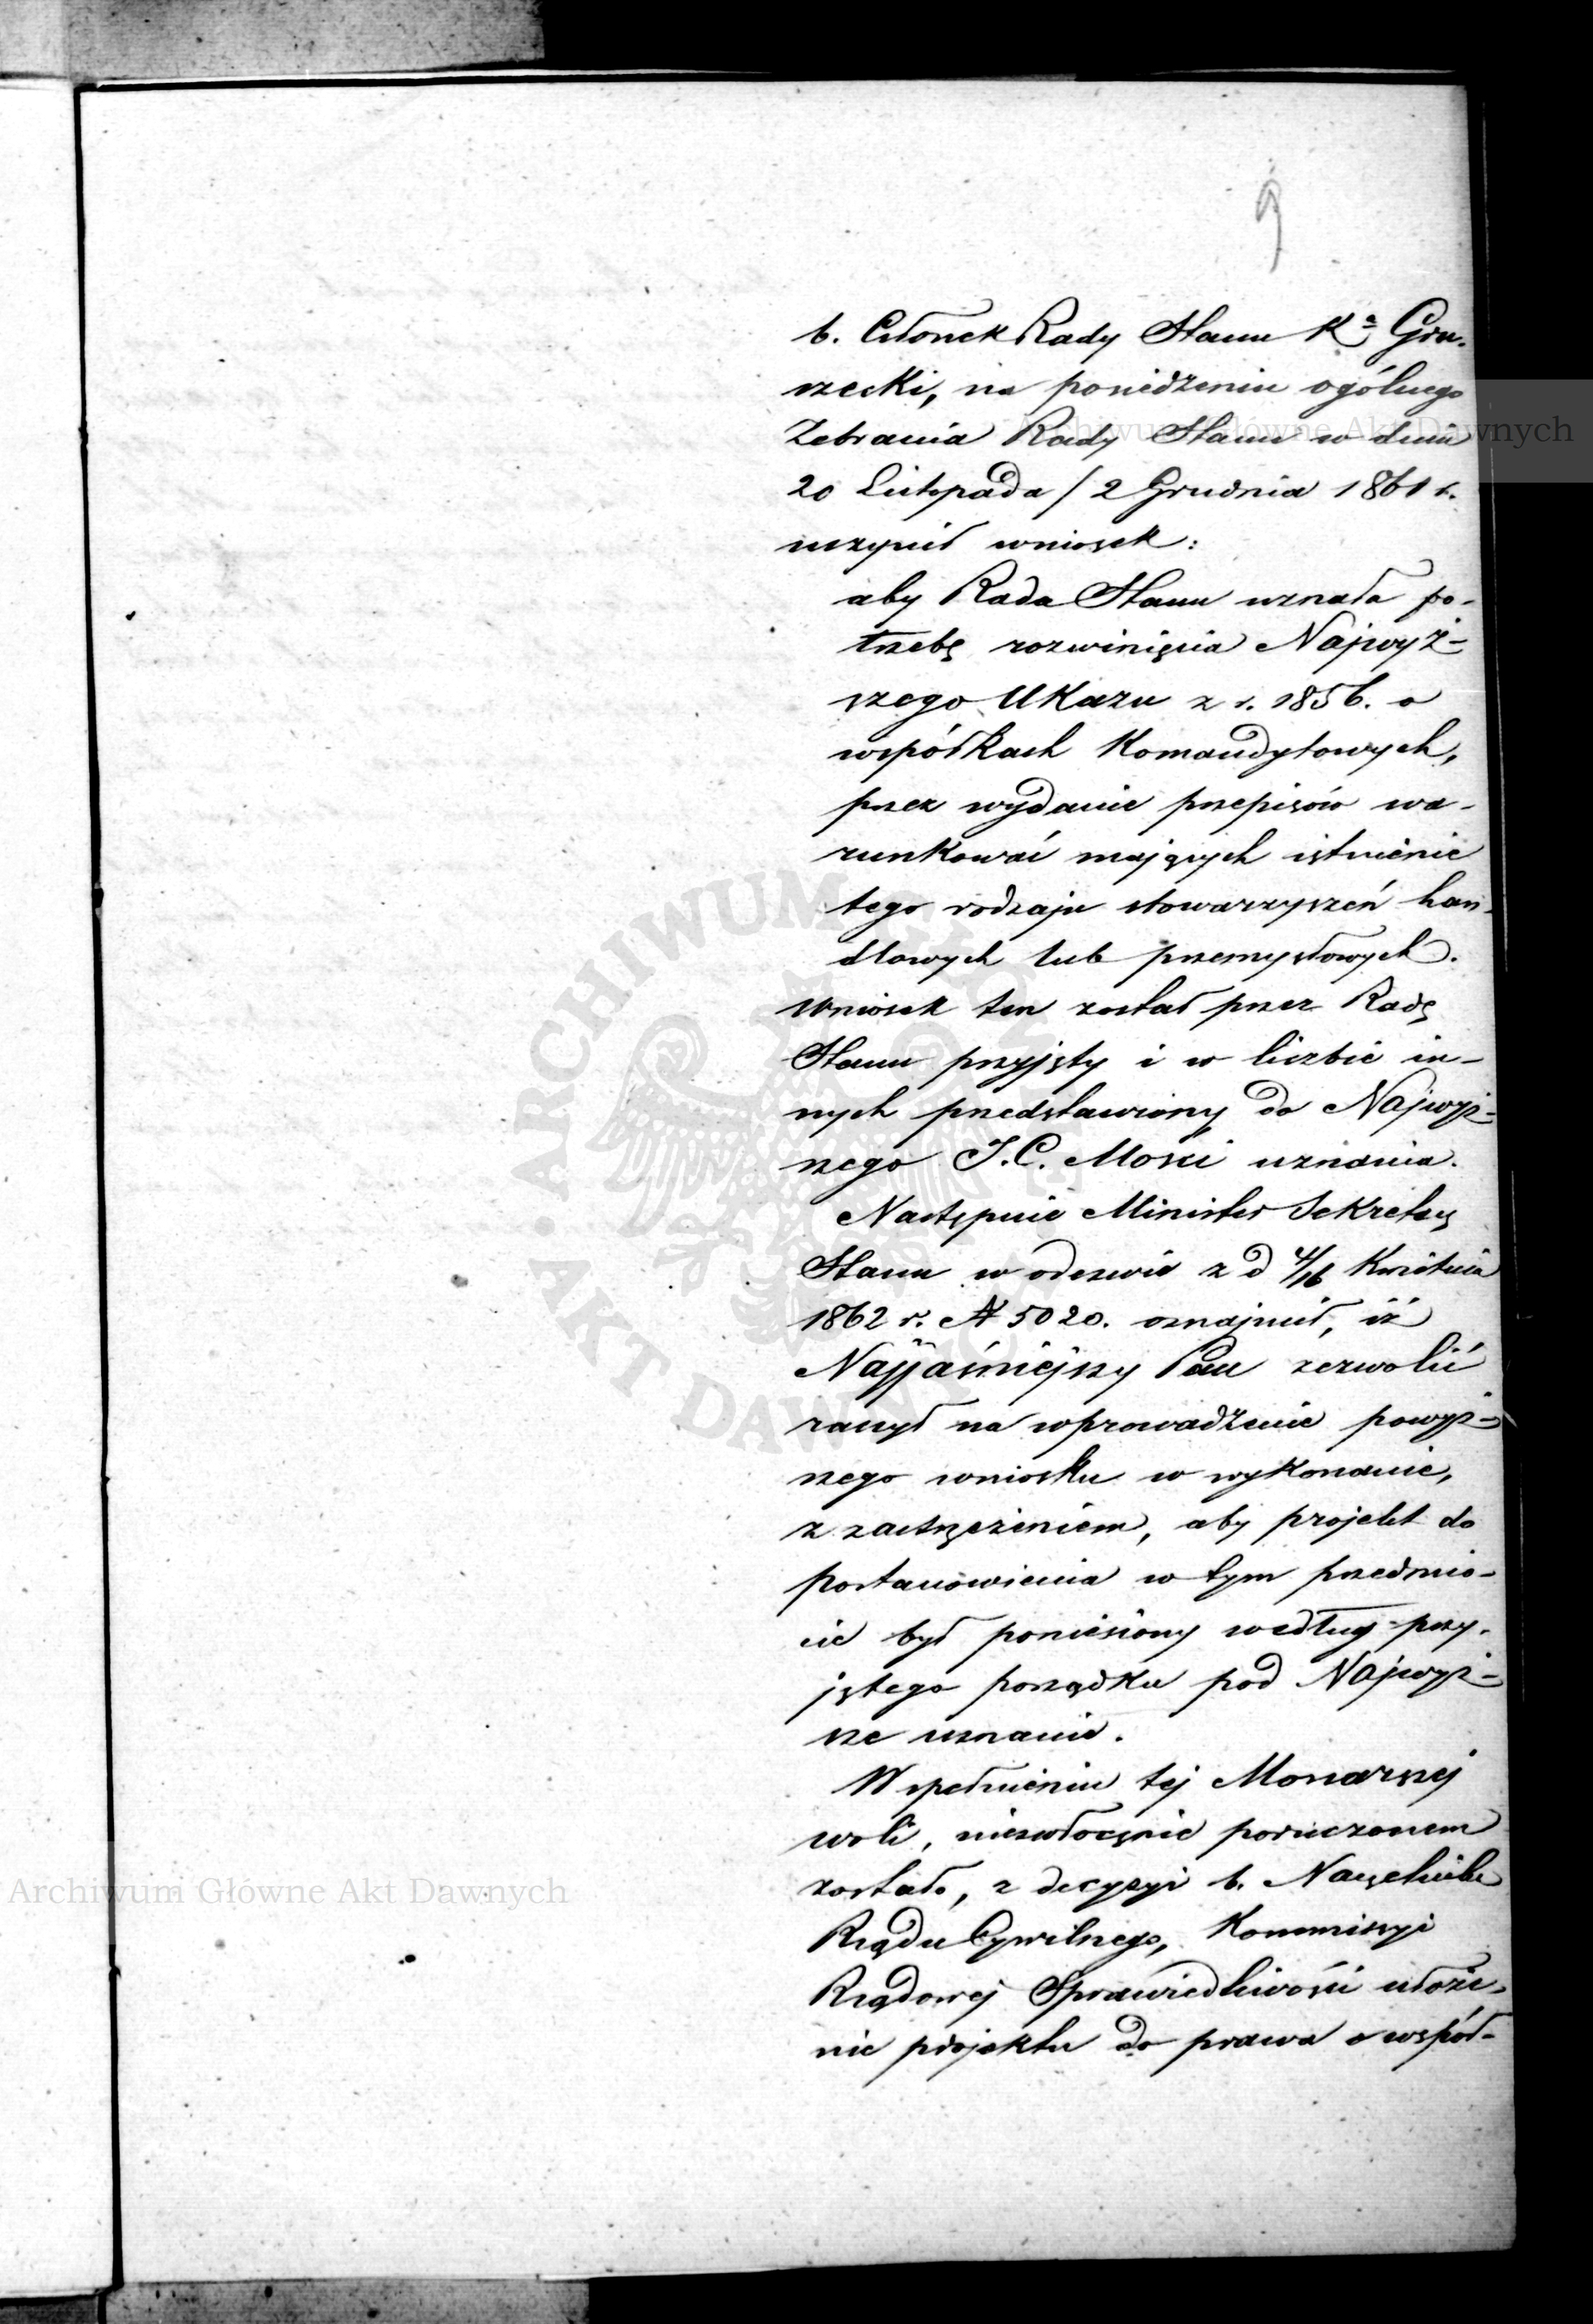 9
b. Członek Rady Stanu Ka Gru-
szecki, na posiedzeniu ogólnego
Zebrania Rady Stanu w dniu
20 Listopada / 2 Grudnia 1861 r.
uczynił wniosek:
aby Rada Stanu uznała po-
trzebę rozwinięcia Najwyż-
szego Ukazu z r. 1856. o
wspólkach Komandytowych,
przez wydanie przepisów wa-
runkować mających istnienie
tego rodzaju stowarzyszeń han-
dlowych lub przemysłowych.
Wniosek ten został przez Radę
Stanu przyjęty i w liczbie in-
nych przedstawiony do Najwyż-
szego J. C. Mości uznania.
Następnie Minister Sekretarz
Stanu w odezwie z d 4/16 Kwietnia
1862 r. № 5020. oznajmił, iż
Najjaśniejszy Pan zezwolić
raczył na wprowadzenie powyż-
szego wniosku w wykonanie,
z zastrzeżeniem, aby projekt do
postanowienia w tym przedmio-
cie był poniesiony według przy-
jętego porządku pod Najwyż-
sze uznanie.
W spełnieniu tej Monarszej
woli, niezwłocznie poruczonem
zostało, z decyzyi b. Naczelnika
Rządu Cywilnego, Kommissyi
Rządowej Sprawiedliwości ułoże-
nie projektu do prawa o współ-
Archiwum Główne Akt Dawnych
Archiwum Główne Akt Dawnych